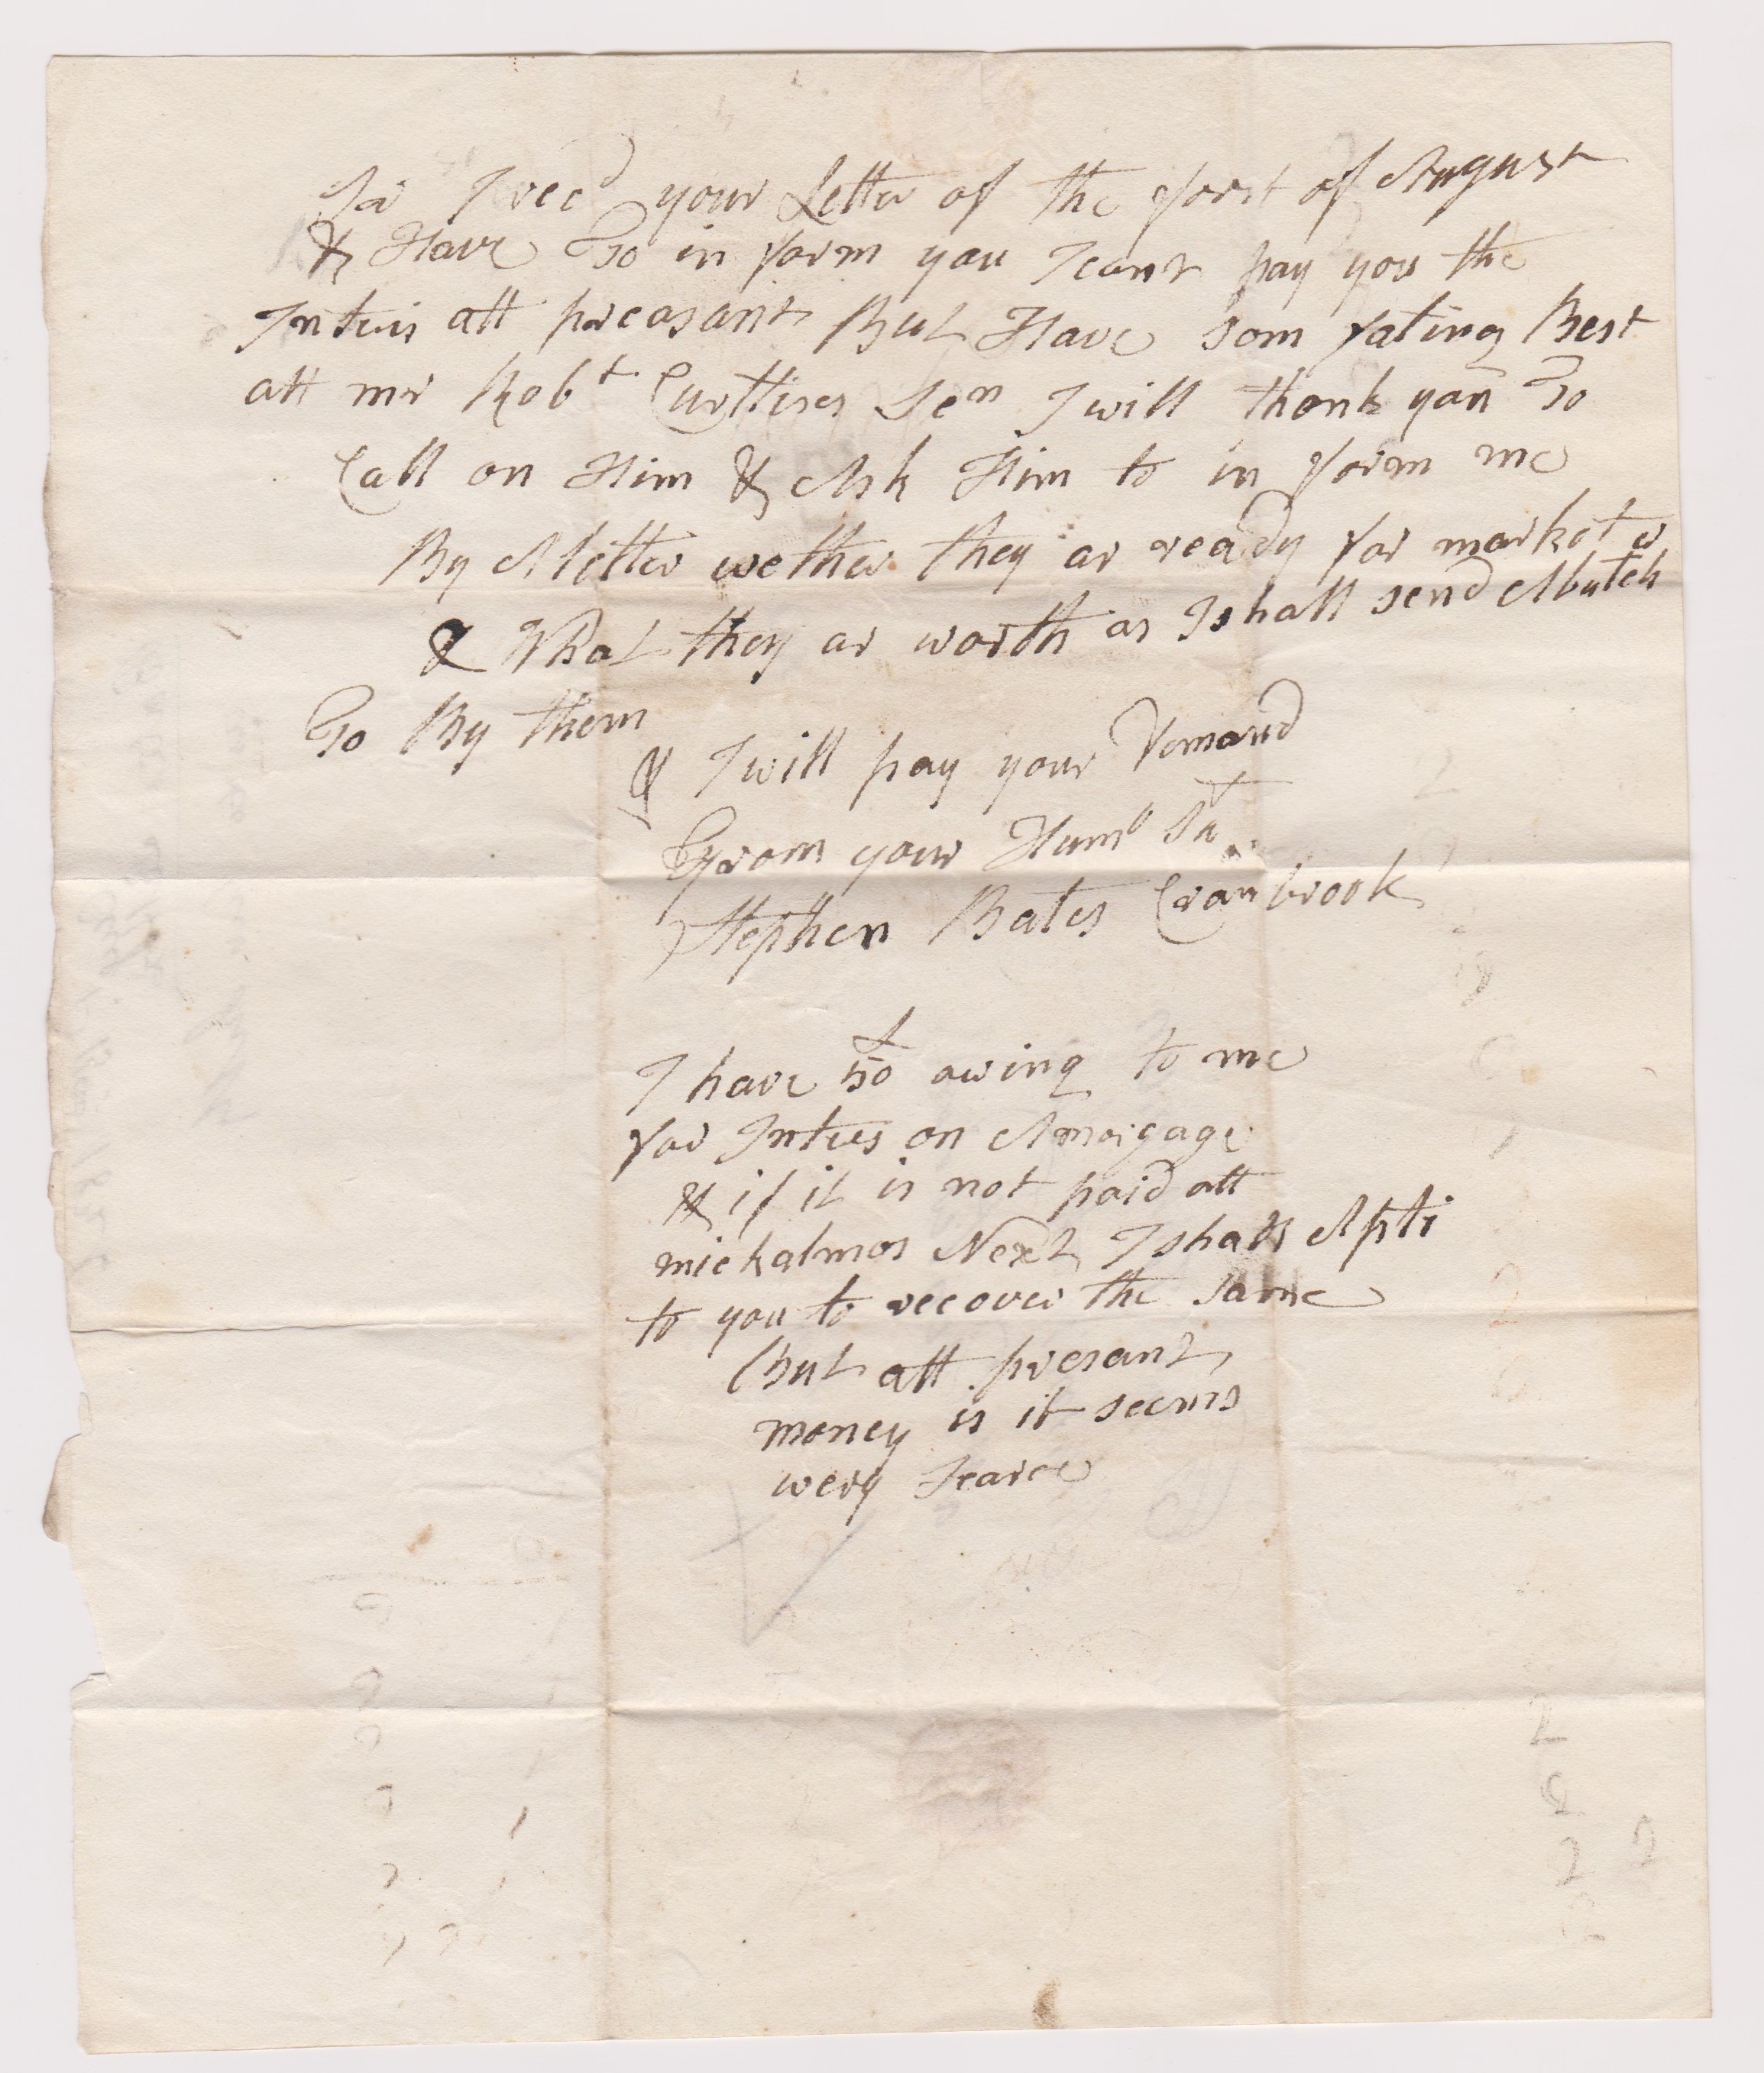 Sir I recd your Letter of the forst of August
& Have To in form you I cant pay you the
Intris att preasant But Have som fating Best
att mr Robt Curttises Sen I will thank you To
Call on Him & Ask Him to in form me
By A letter wether they ar ready for market
& What they ar worth as I shall send A butch er
To By them
& I will pay your Demand
From your Humb Sr
Stephen Bates Cranbrook
I have £50 awing to me
for Intres on A morgage
& if it is not paid att
mickalmas Next I shall Apli
to you to recover the same
But att presant
money is it seems
very Scarce